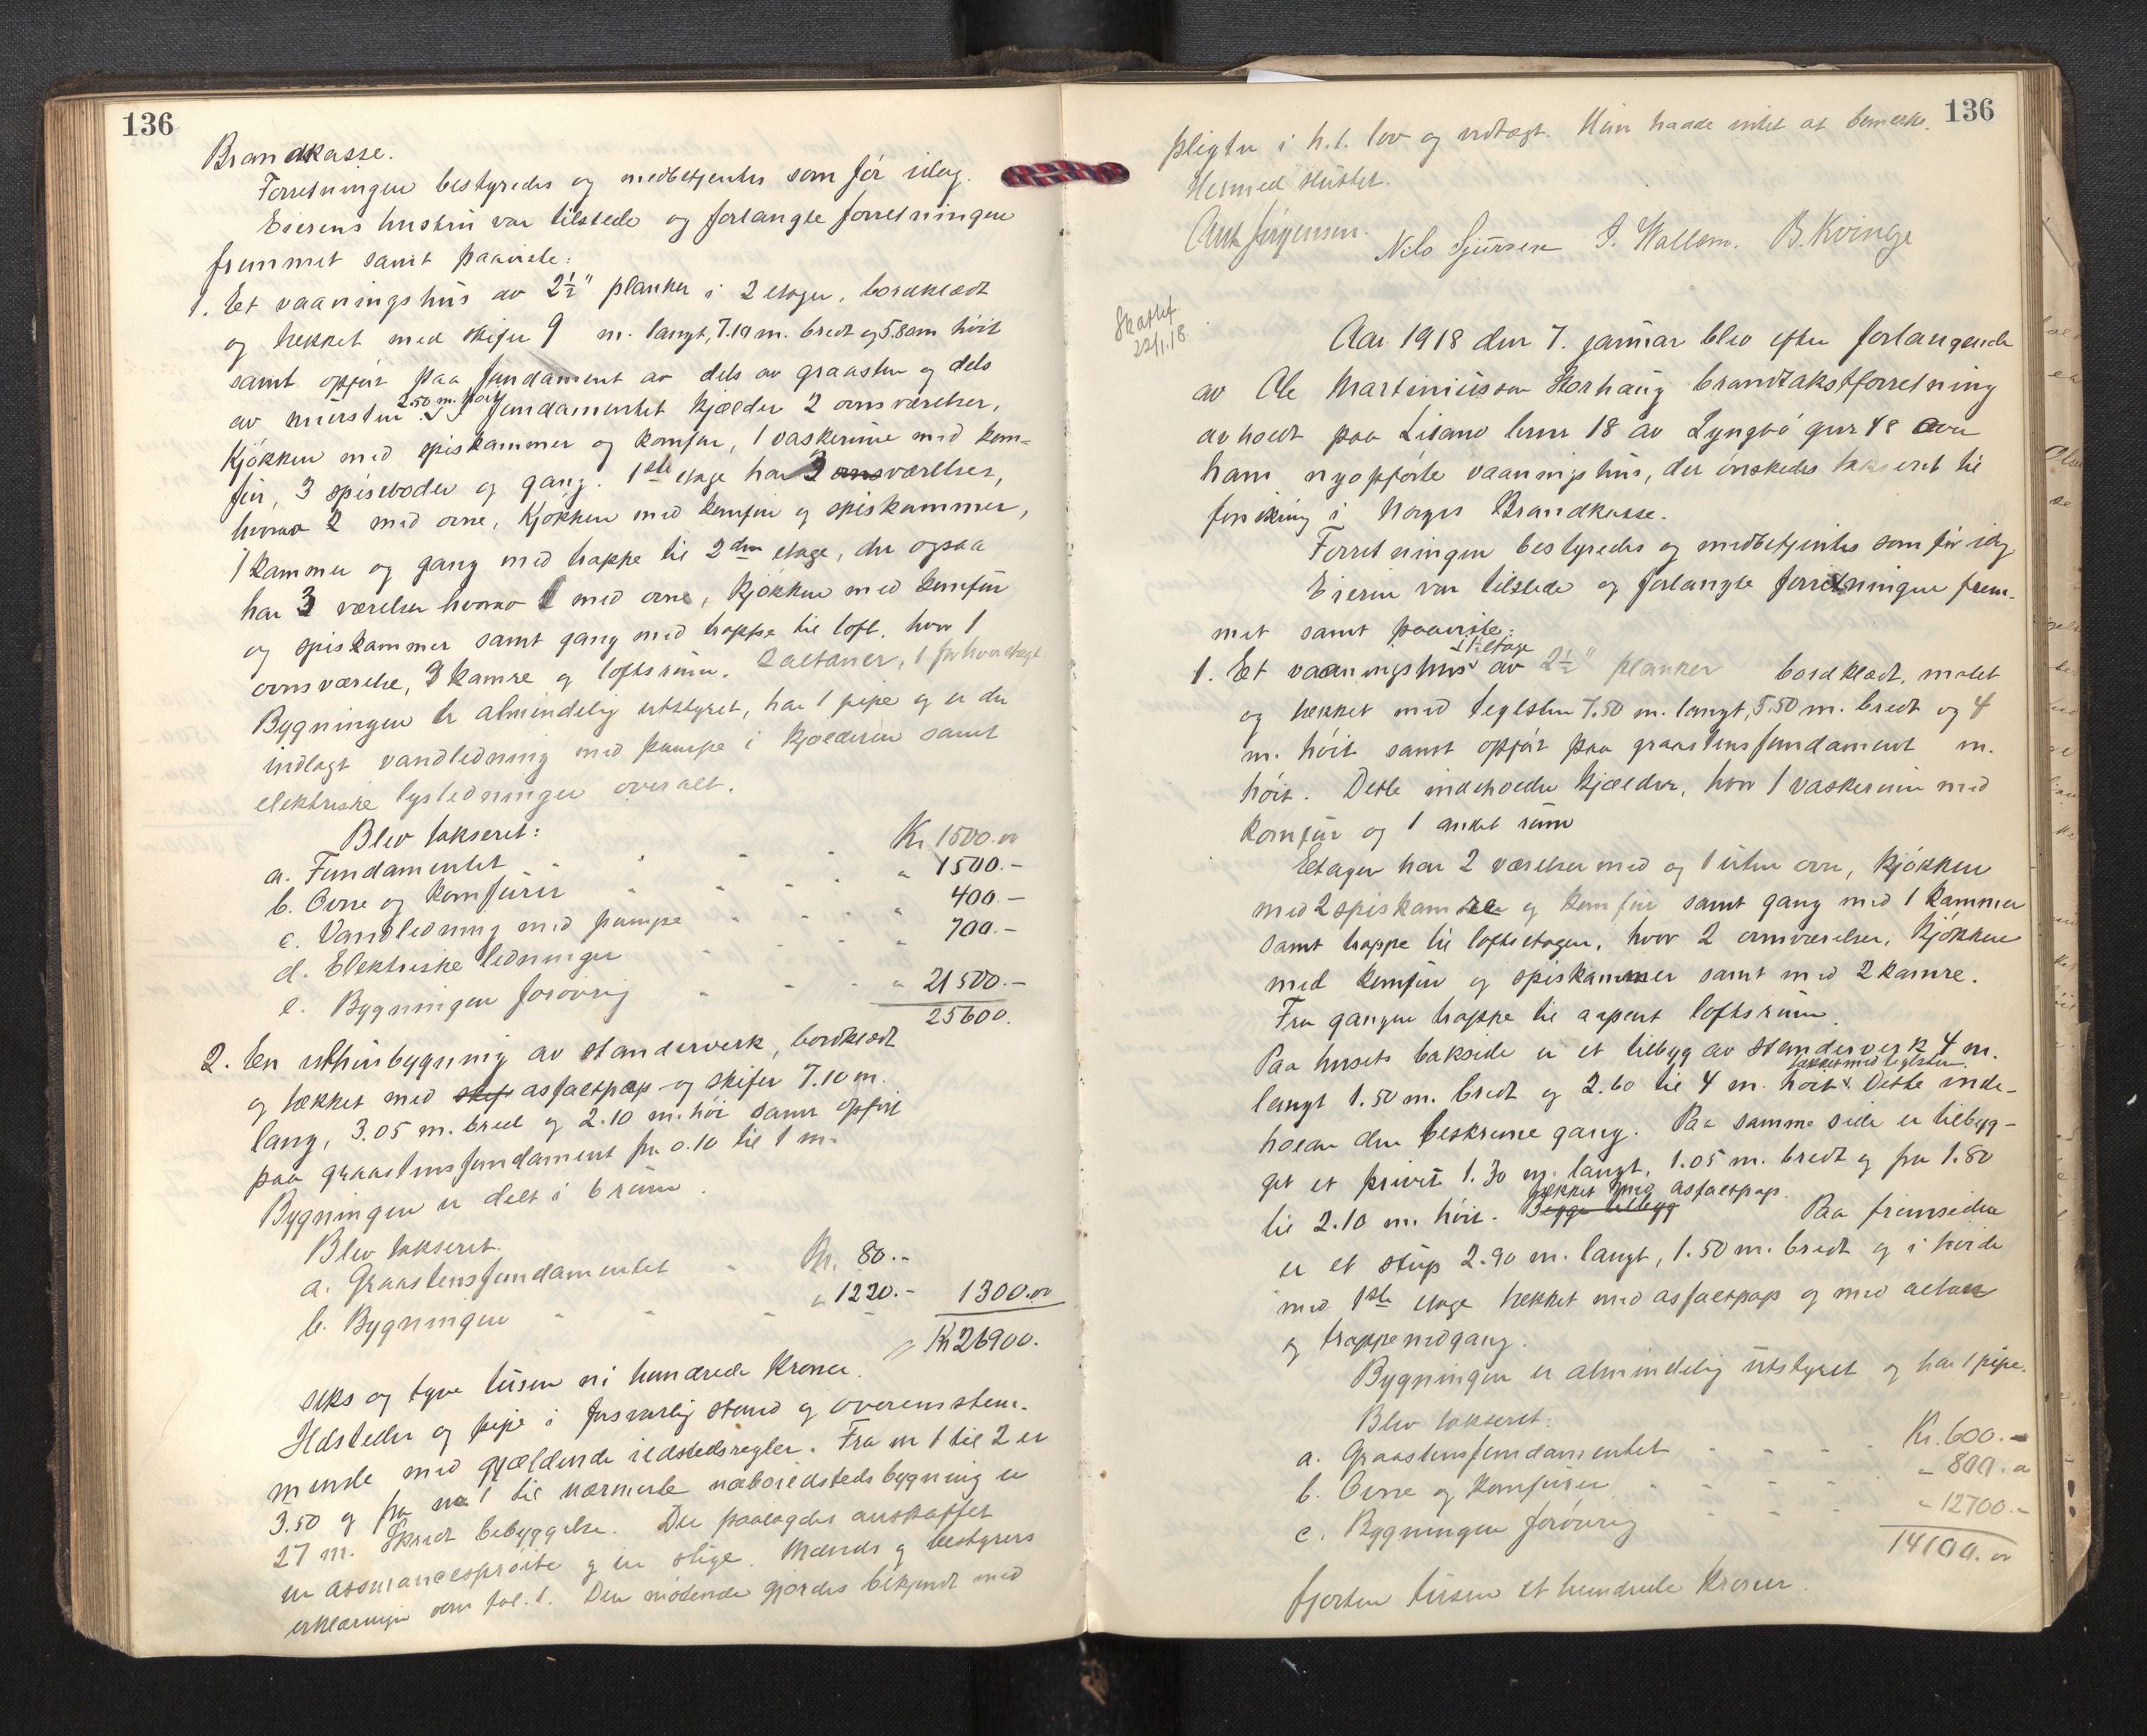 136
Brandkasse.
Forretningen bestyredes og medbetjentes som før idag.
Eierens hustru var tilstede og forlangte forretningen
fremmet samt paaviste:
1. Et vaaningshus av 2½" planker i 2 etager, bordklædt
og tækket med skifer 9 m. langt, 7.10 m. bredt og 5.80 m høit
samt opført paa fundament av dels av graasten og dels
av mursten 2.50 m. høit. I fundamentet kjælder 2 ovnsværelser,
kjøkken med spiskammer og komfur, 1 vaskerum med kom-
fur, 3 spiseboder og gang. 1ste etage har 3 ovnsværelser,
hvorav 2 med ovne, kjøkken med komfur og spiskammer,
1 kammer og gang med trappe til 2den etage, der ogsaa
har 3 værelser hvorav 1 med ovne, kjøkken med komfur
og spiskammer samt gang med trappe til loft, hvor 1
ovnsværelse, 3 kamre og loftsrum. 2 altaner, 1 for hver etage
Bygningen er almindelig utstyret, har 1 pipe og er der
indlagt vandledning med pumpe i kjælderen samt
elektriske lysledninger overalt.
Blev takseret:
a. Fundamentet Kr. 1500.00
b. Ovne og komfurer " 1500.-
c. Vandledning med pumpe " 400.-
d. Elektriske ledninger " 700.-
e. Bygningen forøvrig " 21500.-
25600.
2. En uthusbygning av standerverk, bordklædt
og tækket med skif asfaltpap og skifer 7.10 m.
lang, 3.05 m. bred og 2.10 m. høi samt opført
paa graastensfundament fra 0.10 til 1 m.
Bygningen er delt i 6 rum.
Blev takseret.
a. Graastensfundamentet Kr. 80.-
b. Bygningen " 1220.- 1300.00
Kr 26900.
seks og tyve tusen ni hundrede Kroner.
Ildsteder og pipe i forsvarlig stand og overensstem-
mende med gjældende ildstedsregler. Fra nr 1 til 2 er
3.50 og fra nr 1 til nærmeste naboildstedsbygning er
27 m. Spredt bebyggelse. Der paalagdes anskaffet
en assuransesprøite og en stige. Mænds og bestyrers
erklæringer som fol. 1. Den mødende gjordes bekjendt med
136
pligter i h.t. lov og vedtægt. Hun hadde intet at bemerke.
Hermed sluttet.
Ant. Jørgensen. Nils Sjursen I. Wallem. B. Kvinge
Skattef.
22/1.18.
Aar 1918 den 7. januar blev efter forlangende
av Ole Martiniusson Storhaug brandtakstforretning
avholdt paa Litand brnr 18 av Lyngbø gnr 48 over
ham nyopførte vaaningshus, der ønskedes takseret til
forsikring i Norges Brandkasse.
Forretningen bestyredes og medbetjentes som før idag
Eieren var tilstede og forlangte forretningen frem-
met samt paaviste:
1. Et vaaningshus i 1½ etage av 2½" planker bordklædt, malet
og tækket med teglsten 7.50 m. langt, 5.50 m. bredt og 4
m. høit samt opført paa graastensfundament m.
høit. Dette indeholder kjælder, hvor 1 vaskerum med
komfur og 1 andet rum
Etagen har 2 værelser med og 1 uten ovn, kjøkken
med 2 spiskamre og komfur samt gang med 1 kammer
samt trappe til loftsetagen, hvor 2 ovnsværelser, kjøkken
med komfur og spiskammer samt med 2 kamre.
Fra gangen trappe til aapent loftsrum.
Paa husets bakside er et tilbyg av standerverk 4 m.
langt 1.50 m. bredt og 2.60 til 4 m. høit tækket med teglsten. Dette inde-
holder den beskrevne gang. Paa samme side er tilbyg-
get et privet 1.30 m. langt, 1.05 m. bredt og fra 1.80
til 2.10 m. høit. Begge tilbyg tækket med asfaltpap. Paa fremsiden
er et skup 2.90 m. langt, 1.50 m. bredt og i høide
med 1ste etage tækket med asfaltpap og med altan
og trappenedgang.
Bygningen er almindelig utstyret og har 1 pipe.
Blev takseret:
a. Graastensfundamentet Kr. 600.-
b. Ovne og komfurer " 800.00
c. Bygningen forøvrig " 12700.-
14100.00
fjorten tusen et hundrede Kroner.